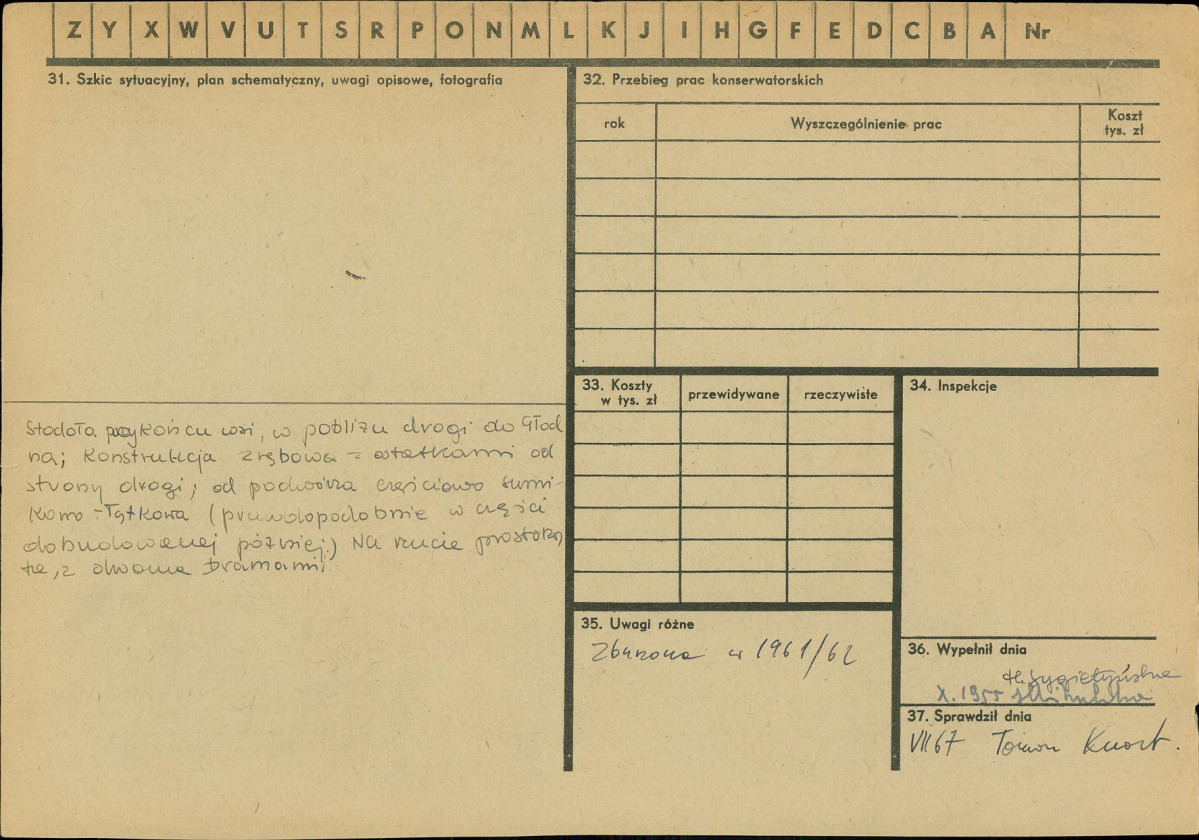 Z Y X W V U T S R P O N M L K J I H G F E D C B A Nr
31. Szkic sytuacyjny, plan schematyczny, uwagi opisowe, fotografia
Stodoła przy końcu wsi, w pobliżu drogi do Głod
na; Konstrukcja zrębowa z ostatkami od
strony drogi; od podwórza częściowo sumi-
kowo-łątkowa (prawdopodobnie w części
dobudowanej później.) Na rzucie prostoką
ta, z dwoma bramami.
32. Przebieg prac konserwatorskich
rok
Wyszczególnienie prac
Koszt
tys. zł
33. Koszty
w tys. zł
przewidywane
rzeczywiste
34. Inspekcje
35. Uwagi różne
Zburzona w 1961/62
36. Wypełnił dnia
H. Sygietyńska
X. 1955
37. Sprawdził dnia
VII 67